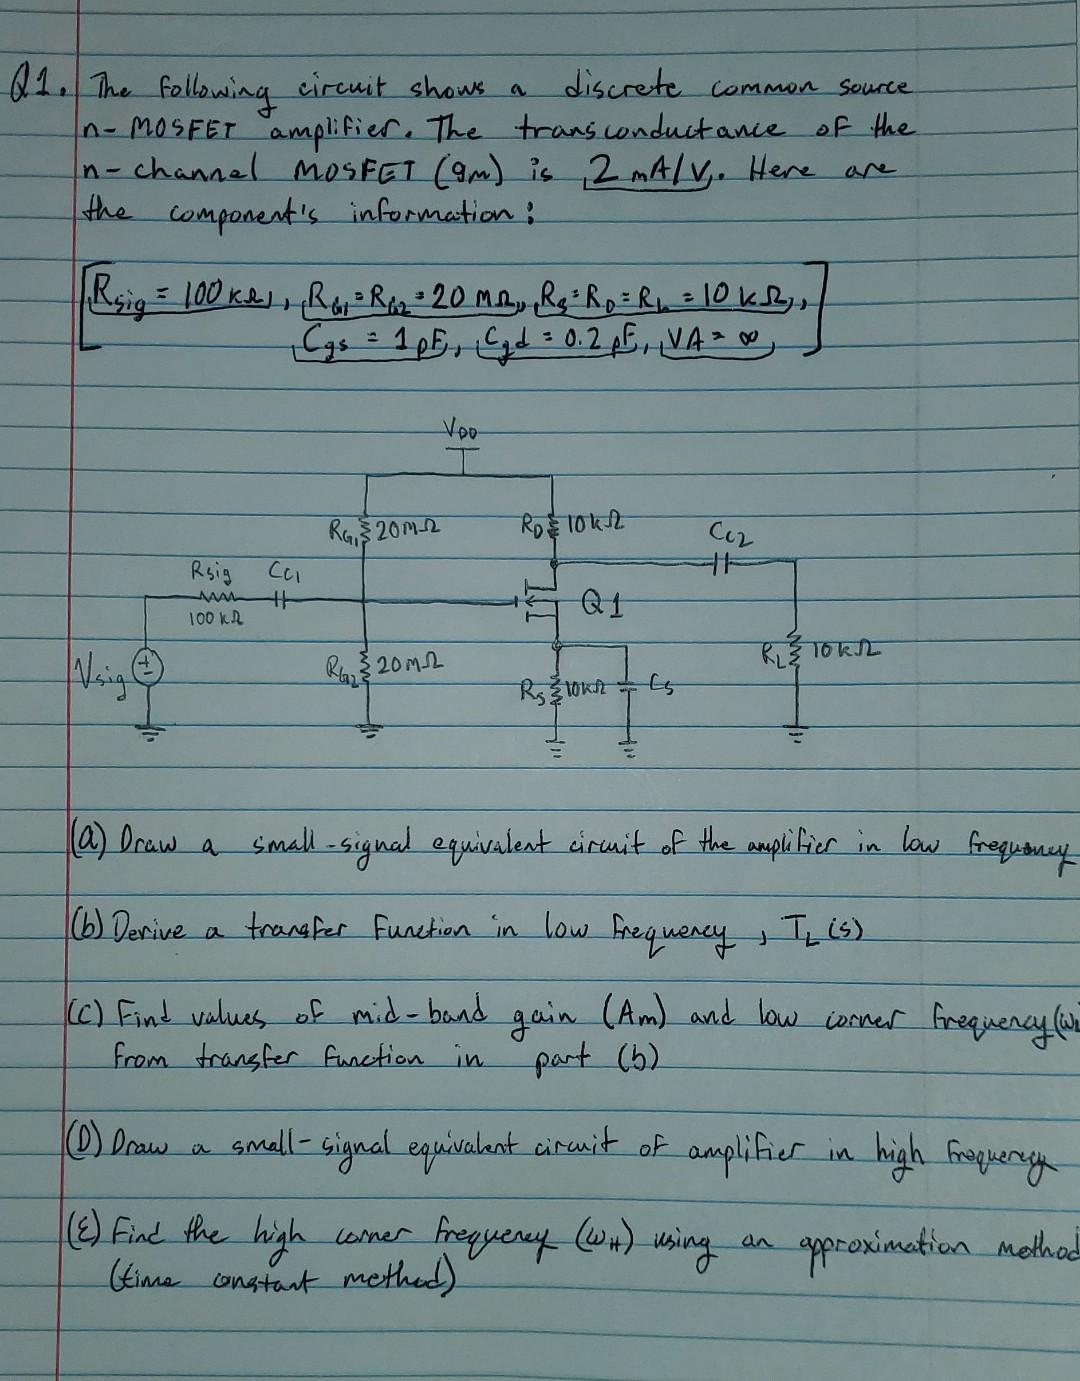 Q1. The following circuit shows a discrete common source
n-MOSFET amplifier. The transconductance of the
n-channel MOSFET (gm) is 2 mA/V. Here are
the component's information:
[Rsig = 100 kΩ, RG1 = RG2 = 20 MΩ, RS = RD = RL = 10 kΩ,
Cgs = 1 pF, Cgd = 0.2 pF, VA = ∞]
VDD
RG1 20MΩ RD 10kΩ CC2
Rsig CC1
100 kΩ Q1
Vsig RG2 20MΩ RS 10kΩ CS RL 10kΩ
(a) Draw a small-signal equivalent circuit of the amplifier in low frequency
(b) Derive a transfer function in low frequency, TL(s)
(C) Find values of mid-band gain (Am) and low corner frequency (ω
from transfer function in part (b)
(D) Draw a small-signal equivalent circuit of amplifier in high frequency
(E) Find the high corner frequency (ωH) using an approximation method
(time constant method)